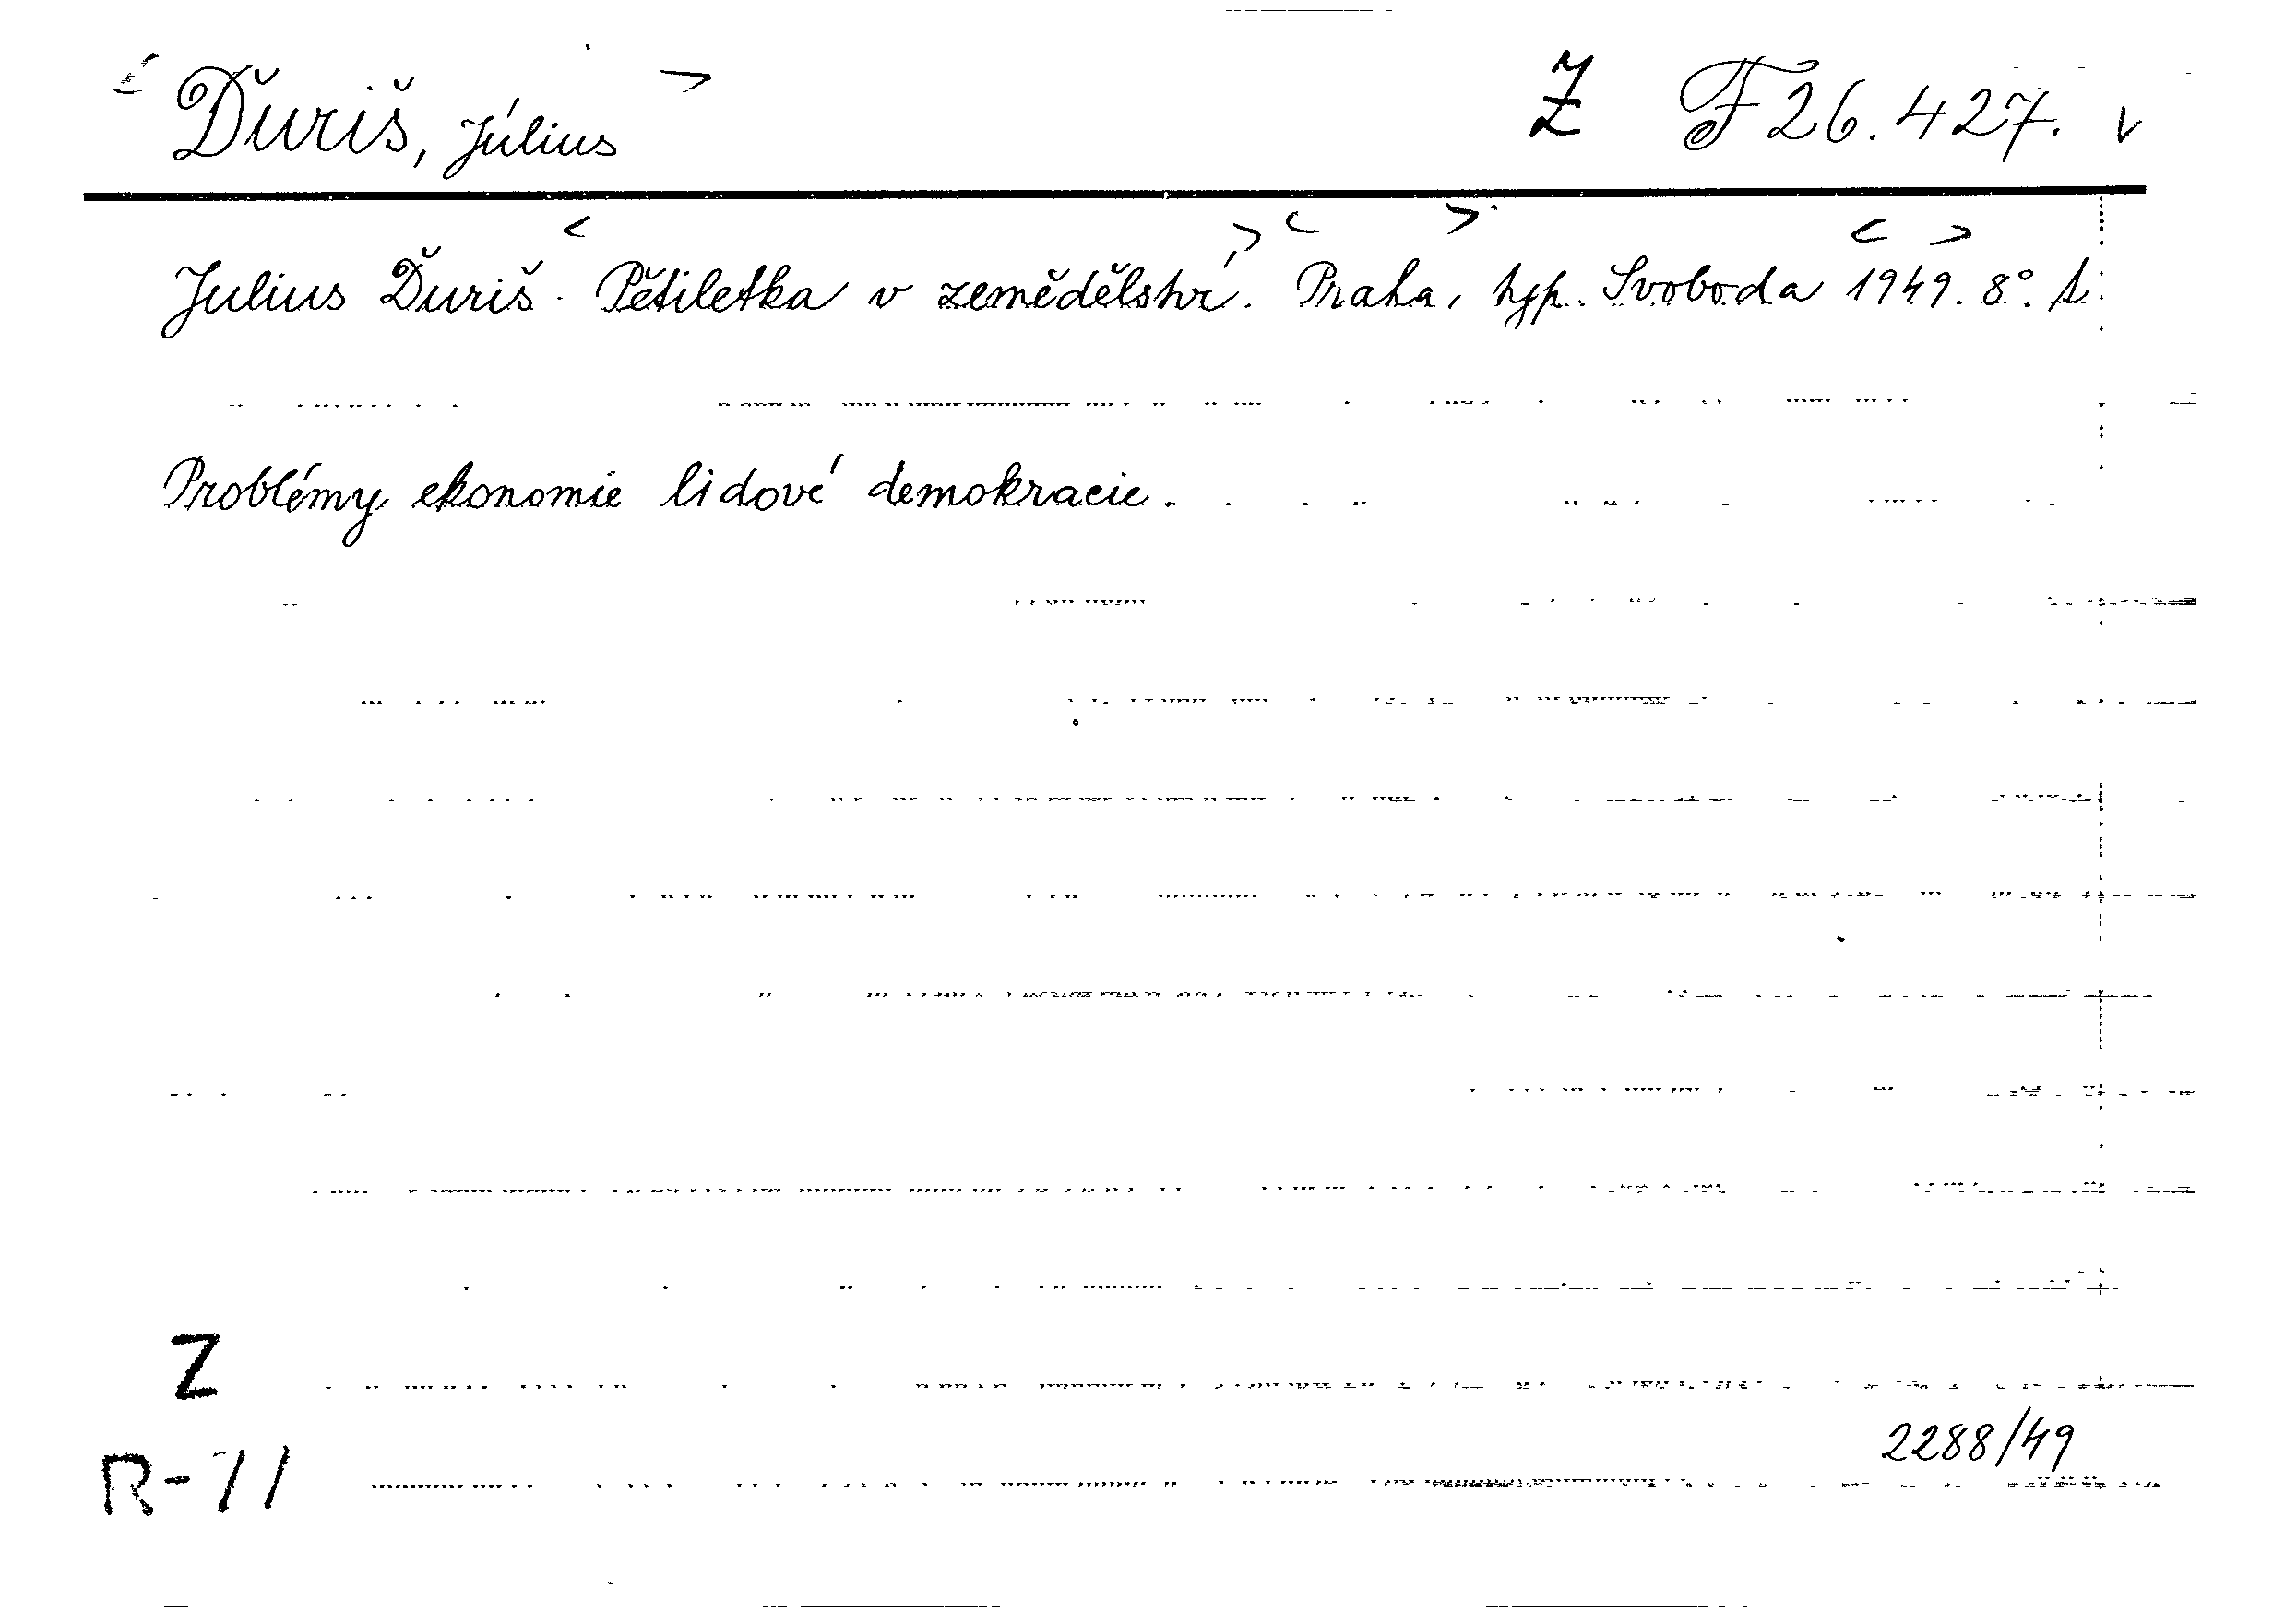 Ďuriš, Július Z F 26.427. v
Julius Ďuriš. Pětiletka v zemědělství. Praha, typ. Svoboda 1949. 8°.
Problémy ekonomie lidové demokracie.
Z
2288/49
R-71